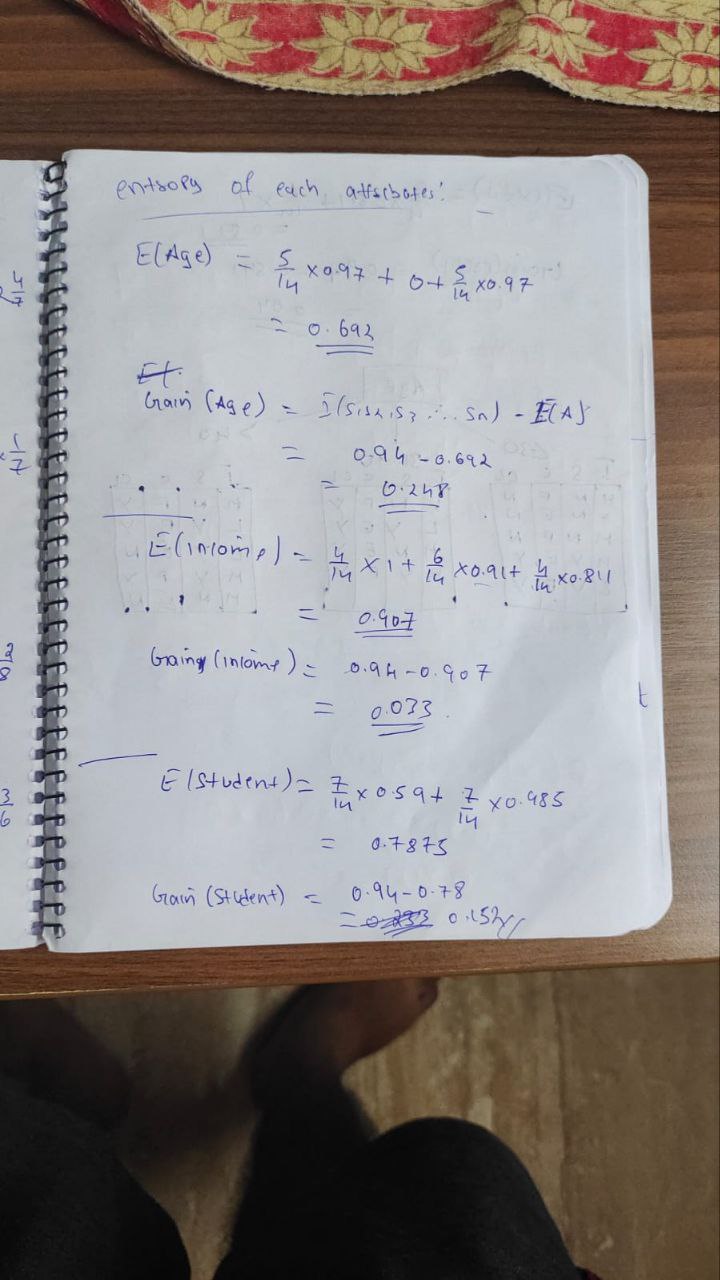 entropy of each attributes:
E(Age) = 5/14 x0.97 + 0+ 5/14 x0.97
= 0.692
Gain (Age) = I(S1S2,S3 ... Sn) - E(A)
= 0.94 -0.692
= 0.248
E(income) = 4/14 x 1 + 6/14 x0.91+ 4/14 x0.811
= 0.907
Gain (income) = 0.94-0.907
= 0.033
E(Student) = 7/14 x 0.59+ 7/14 x0.985
= 0.7875
Gain (Student) = 0.94-0.78
= 0.152
4/7
1/7
2/8
3/6
t